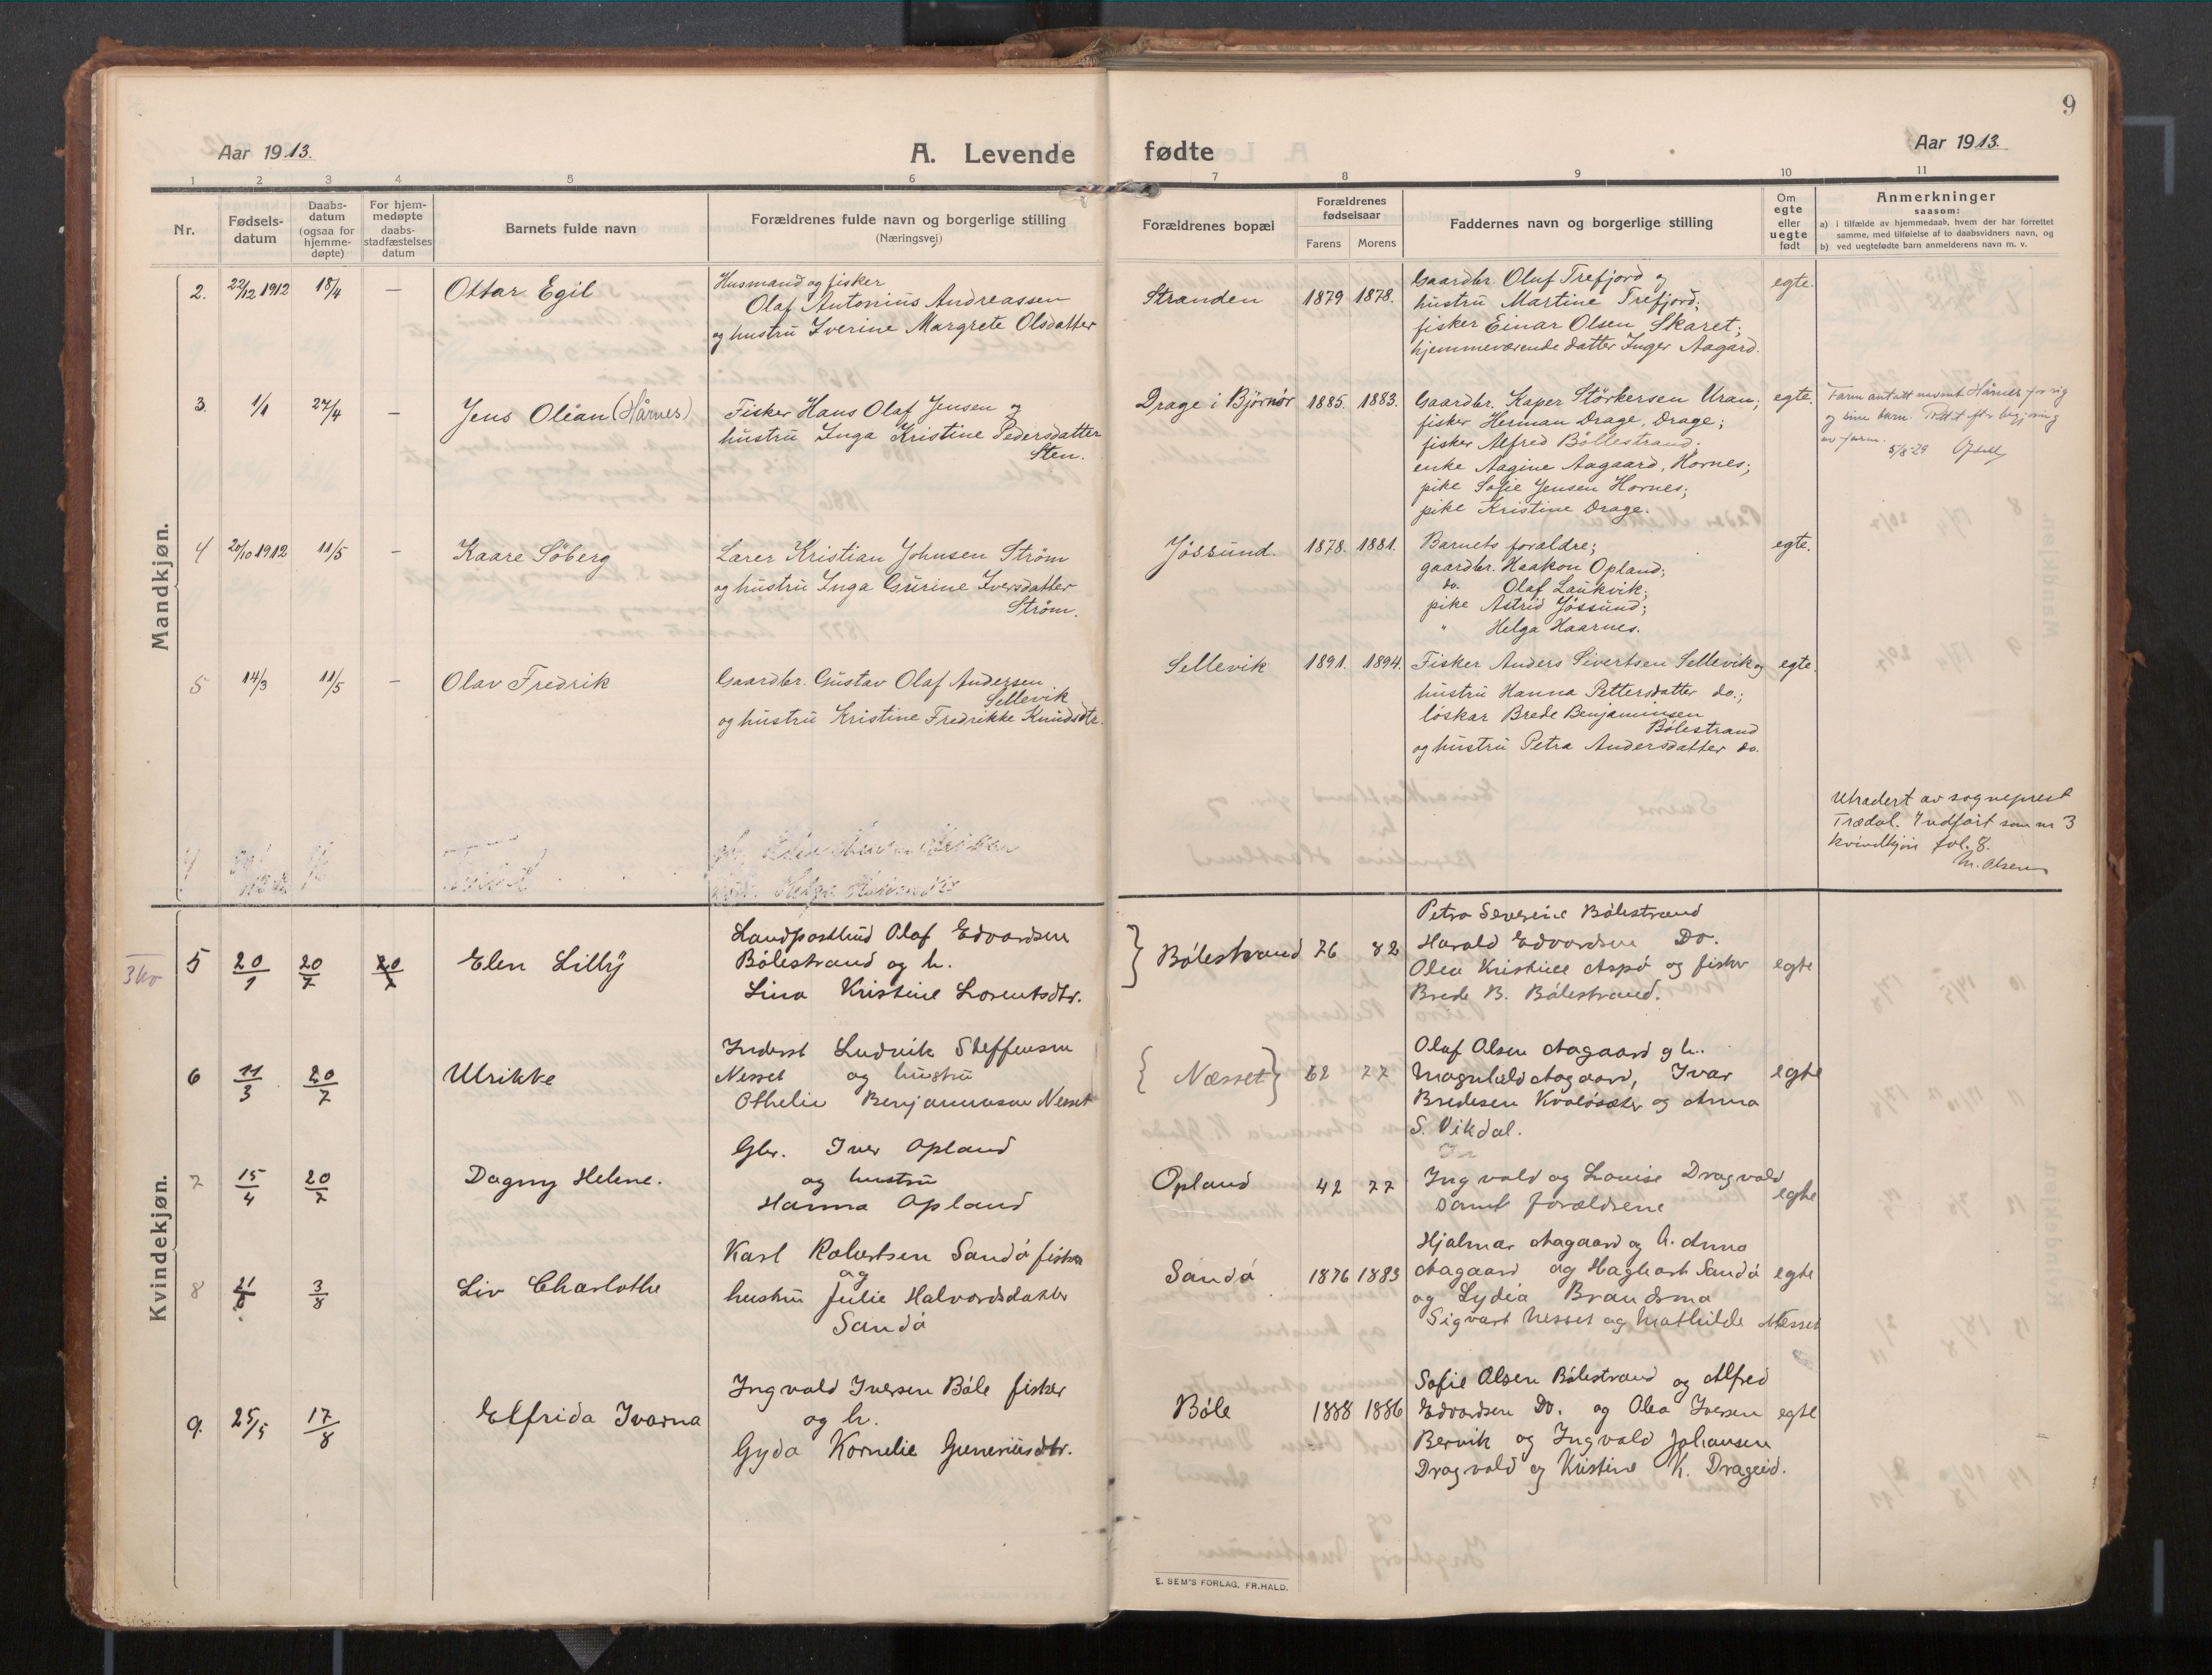 9
Aar 1913.
A. Levende
fødte
Aar 1913.
1 2 3 4 5 6 7 8 9 10 11
Nr.
Fødsels-
datum
Daabs-
datum
(ogsaa for
hjemme-
døpte)
For hjem-
medøpte
daabs-
stadfæstelses
datum
Barnets fulde navn
Forældrenes fulde navn og borgerlige stilling
(Næringsvej)
Forældrenes bopæl
Forældrenes
fødselsaar
Farens Morens
Faddernes navn og borgerlige stilling
Om
egte
eller
uegte
født
Anmerkninger
saasom:
a) i tilfælde av hjemmedaab, hvem der har forrettet
samme, med tilføielse af to daabsvidners navn, og
b) ved uegtefødte barn anmelderens navn m. v.
Mandkjøn.
2. 22/12 1912 18/4 — Ottar Egil
Husmand og fisker
Olaf Antonius Andreassen
og hustru Iverine Margrete Olsdatter
Stranden 1879 1878.
Gaardbr. Oluf Trefjord og
hustru Martine Trefjord;
fisker Einar Olsen Skaret;
hjemmeværende datter Inger Aagard.
egte.
3. 1/1 27/4 — Jens Olean (Hårnes)
Fisker Hans Olaf Jensen og
hustru Inga Kristine Pedersdatter
Sten.
Drage i Bjørnør 1885. 1883.
Gaardbr. Kaper Størkersen Uran;
fisker Herman Drage, Drage;
fisker Alfred Böllestrand;
enke Aagine Aagaard, Hornes;
pike Sofie Jensen Hornes;
pike Kristine Drage.
egte.
Farm antatt navnet Hårnes for sig
og sine barn.
av farm.
5/8-29
4 20/10 1912 11/5 — Kaare Söberg
Lærer Kristian Johnsen Ström
og hustru Inga Gurine Iversdatter
Ström.
Jössund. 1878. 1881.
Barnets forældre;
gaardbr. Haakon Opland;
do. Olaf Laukvik;
pike Astrid Jössund;
" Helga Haarnes.
egte.
5 14/3 11/5 — Olav Fredrik
Gaardbr. Gustav Olaf Andersen
Sellevik
og hustru Kristine Fredrikke Knudsdtr.
Sellevik 1891. 1894.
Fisker Anders Sivertsen Sellevik og
hustru Hanna Pettersdatter do.;
löskar Brede Benjaminsen
Bölestrand
og hustru Petra Andersdatter do.
egte.
Utradert av sogneprest
Trædal. Indført som nr 3
kvindkjøn fol. 8.
M. Olsen
Kvindekjøn.
3 kr
5 20/1 20/7 20/7 Elen Lilly
Landpostbud Olaf Edvardsen
Bölestrand og h.
Lina Kristine Lorentsdtr.
Bölestrand 76 82
Petra Severine Bölestrand
Harald Edvardsen Do.
Olea Kristine Aspö og fisker
Brede B. Bölestrand.
egte
6 11/3 20/7 Ulrikke
Inderst Ludvik Steffensen
Nesset og hustru
Othelie Benjaminsen Nesset
Næsset 62 77
Olaf Olsen Aagaard og h.
Magnhild Aagaard, Ivar
Bredesen Kvalösæter og Anna
S. Vikdal.
egte
7 15/4 20/7 Dagny Helene.
Gbr. Iver Opland
og hustru
Hanna Opland
Opland 42 77
Ingvald og Louise Dragvold
samt forældrene
egte
8 21/6 3/8 Liv Charlothe
Karl Robertsen Sandö fisker
og
hustru Julie Halvordsdatter
Sandö
Sandö 1876 1883
Hjalmar Aagaard og h. Anna
Aagaard og Hagbart Sandö
og Lydia Brandsmo
Sigvart Nesset og Mathilde Nesset
egte
9. 25/5 17/8 Elfrida Ivarna
Ingvald Iversen Böle fisker
og h.
Gyda Kornelie Guneriusdtr.
Böle 1888 1886
Sofie Olsen Bölestrand og Alfred
Edvardsen Do. og Olea Iversen
Bervik og Ingvald Johansen
Dragvold og Kristine K. Drageid.
egte
E. SEM'S FORLAG, FR.HALD.